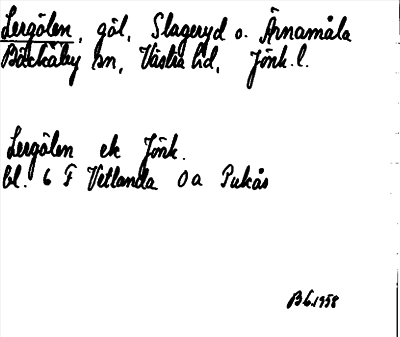 Lergölen, göl, Slageryd o. Ärnamåla
Bäckaby sn, Västra hd, Jönk. l.
Lergölen ek Jönk.
bl. 6 F Vetlanda 0a Pukås
BG 1958